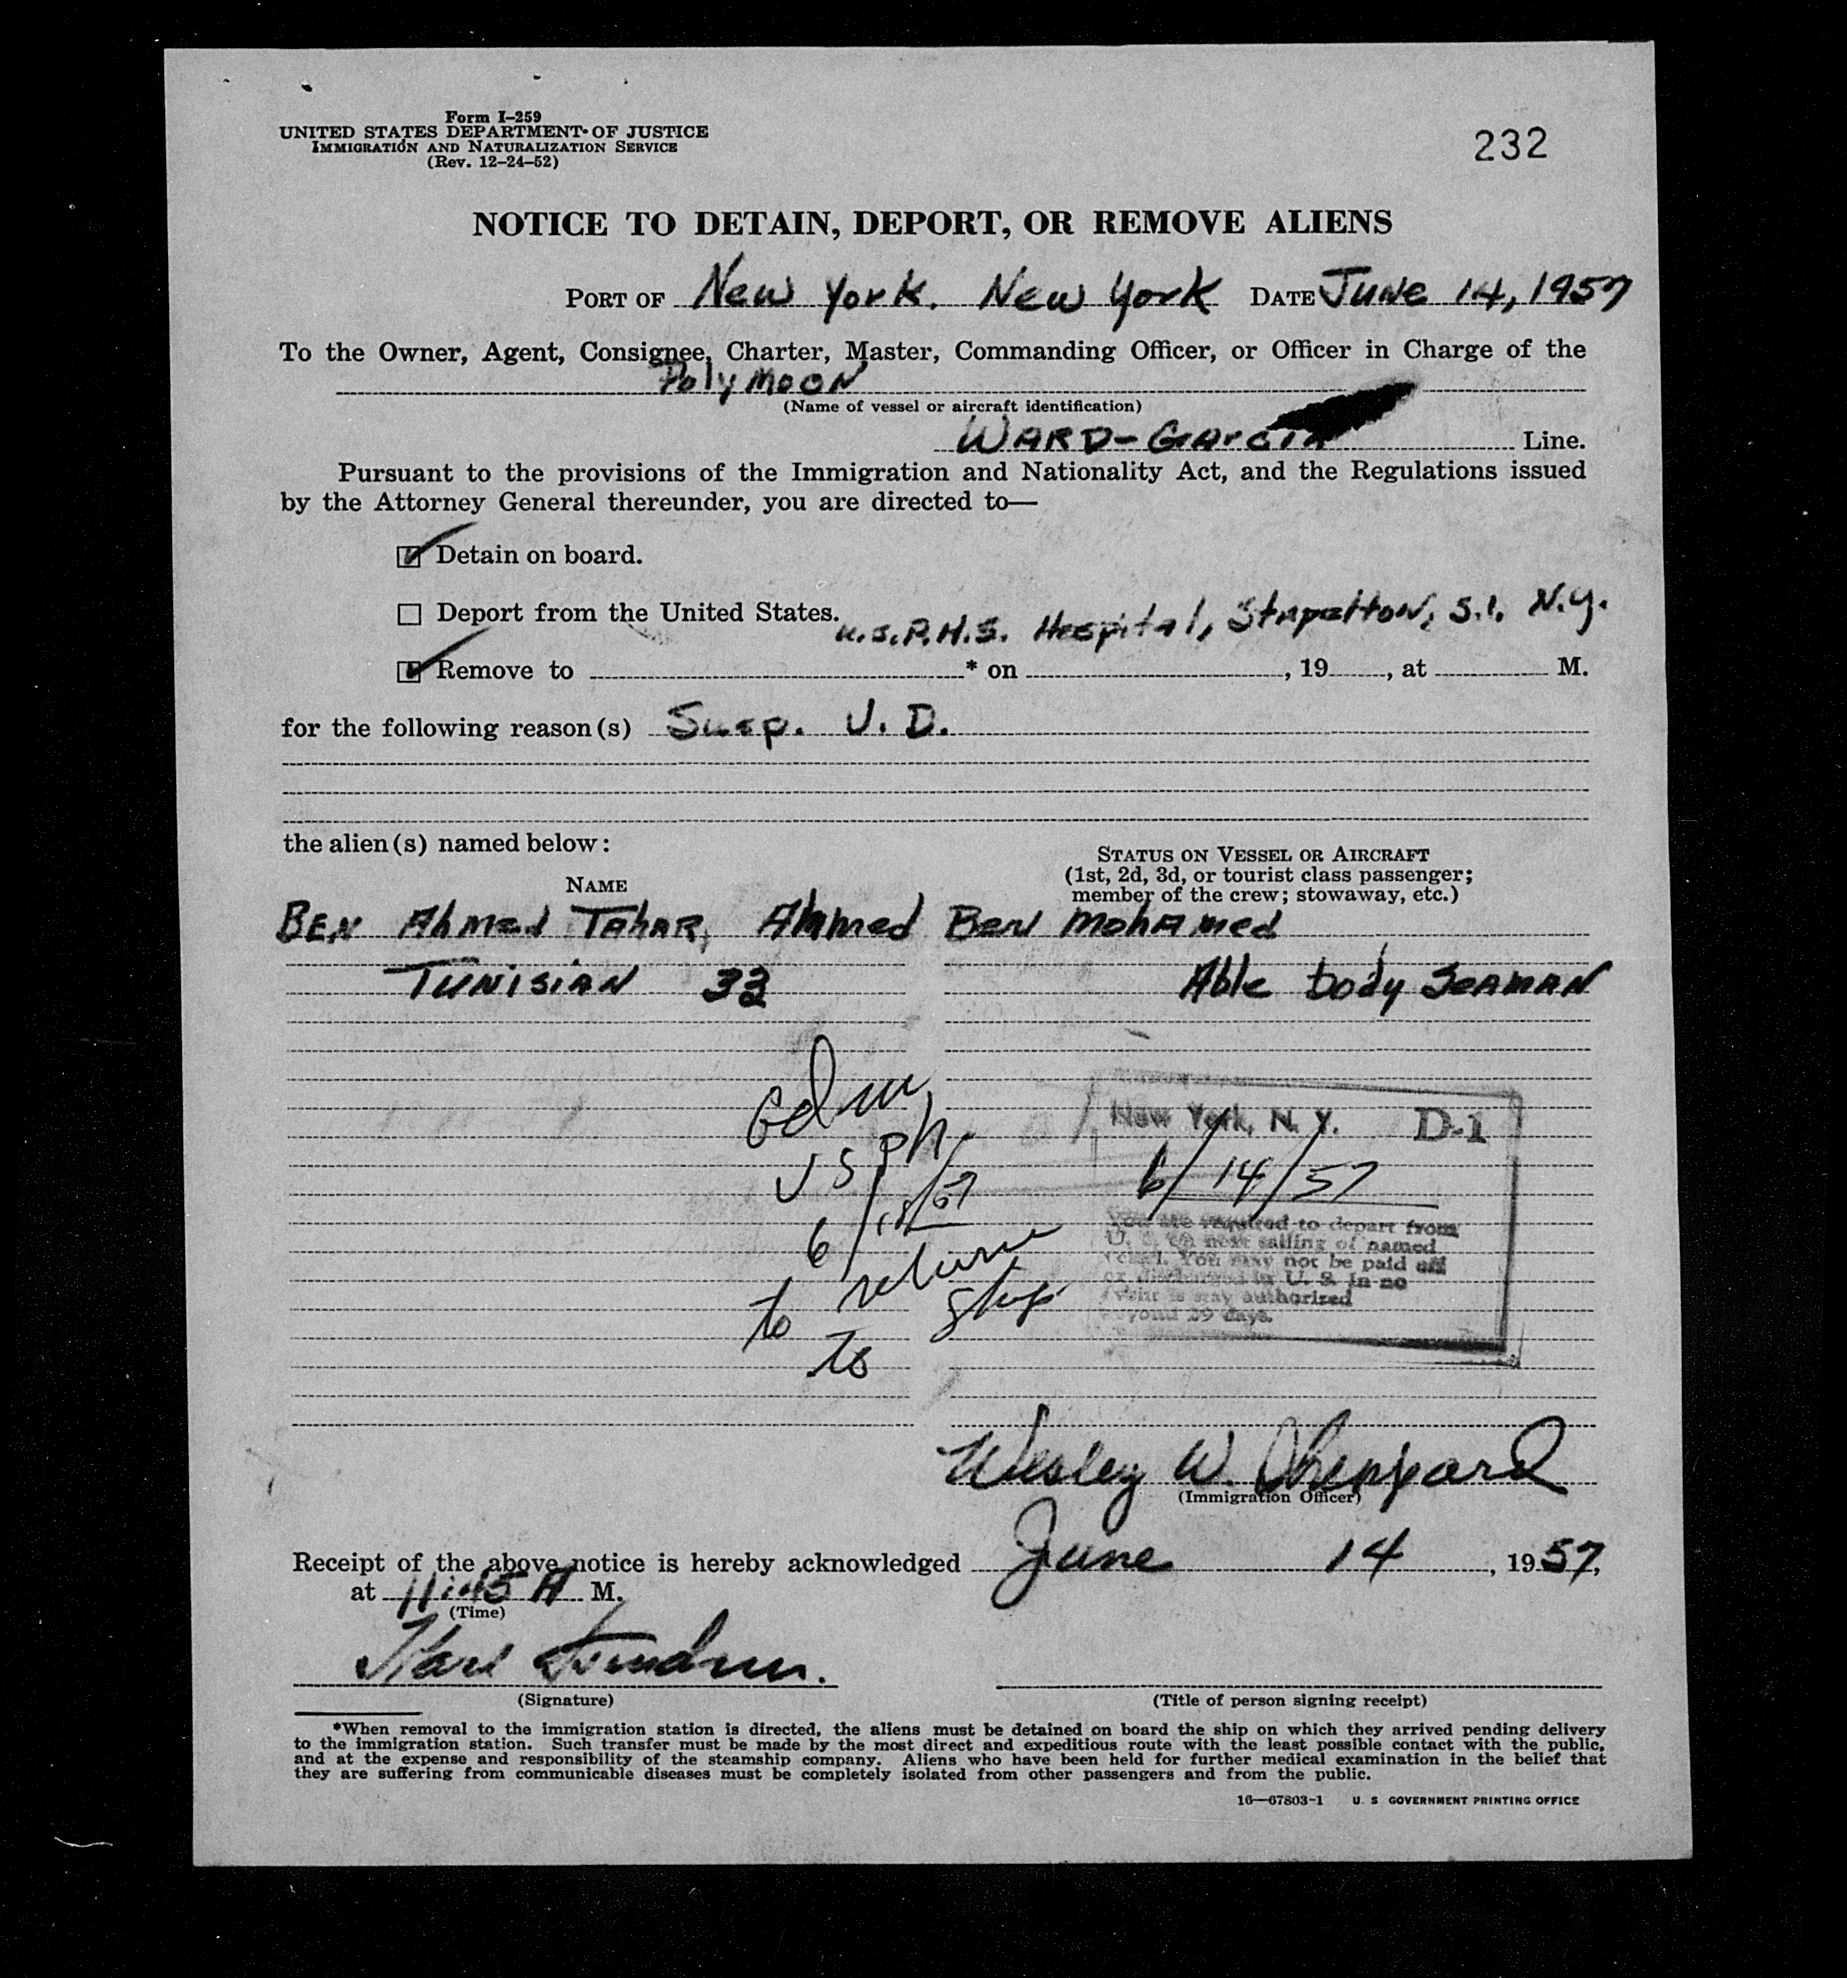 Form I-259
UNITED STATES DEPARTMENT OF JUSTICE
IMMIGRATION AND NATURALIZATION SERVICE
(Rev. 12-24-52)
232
NOTICE TO DETAIN, DEPORT, OR REMOVE ALIENS
PORT OF New York, New York DATE June 14, 1957
To the Owner, Agent, Consignee, Charter, Master, Commanding Officer, or Officer in Charge of the
Polymoon
(Name of vessel or aircraft identification)
WARD-Garcia Line.
Pursuant to the provisions of the Immigration and Nationality Act, and the Regulations issued
by the Attorney General thereunder, you are directed to—
Detain on board.
Deport from the United States.
U.S.P.H.S. Hospital, Stapelton, S.I. N.Y.
Remove to * on , 19 , at M.
for the following reason(s) Susp. V.D.
the alien(s) named below:
STATUS ON VESSEL OR AIRCRAFT
(1st, 2d, 3d, or tourist class passenger;
member of the crew; stowaway, etc.)
NAME
BEN Ahmed TAHAR, Ahmed Ben Mohamed
TUNISIAN 33 Able body SEAMAN
New York, N. Y. D-1
6/14/57
You are required to depart from
U. S. on next sailing of named
vessel. You may not be paid off
or discharged in U. S. In no
event is stay authorized
beyond 29 days.
USPH
6/18/57
to return
to ship
Wesley W. Sheppard
(Immigration Officer)
Receipt of the above notice is hereby acknowledged June 14, 1957,
at 11:45 A M.
(Time)
Karl
(Signature)
(Title of person signing receipt)
*When removal to the immigration station is directed, the aliens must be detained on board the ship on which they arrived pending delivery
to the immigration station. Such transfer must be made by the most direct and expeditious route with the least possible contact with the public,
and at the expense and responsibility of the steamship company. Aliens who have been held for further medical examination in the belief that
they are suffering from communicable diseases must be completely isolated from other passengers and from the public.
16—67803-1 U. S GOVERNMENT PRINTING OFFICE